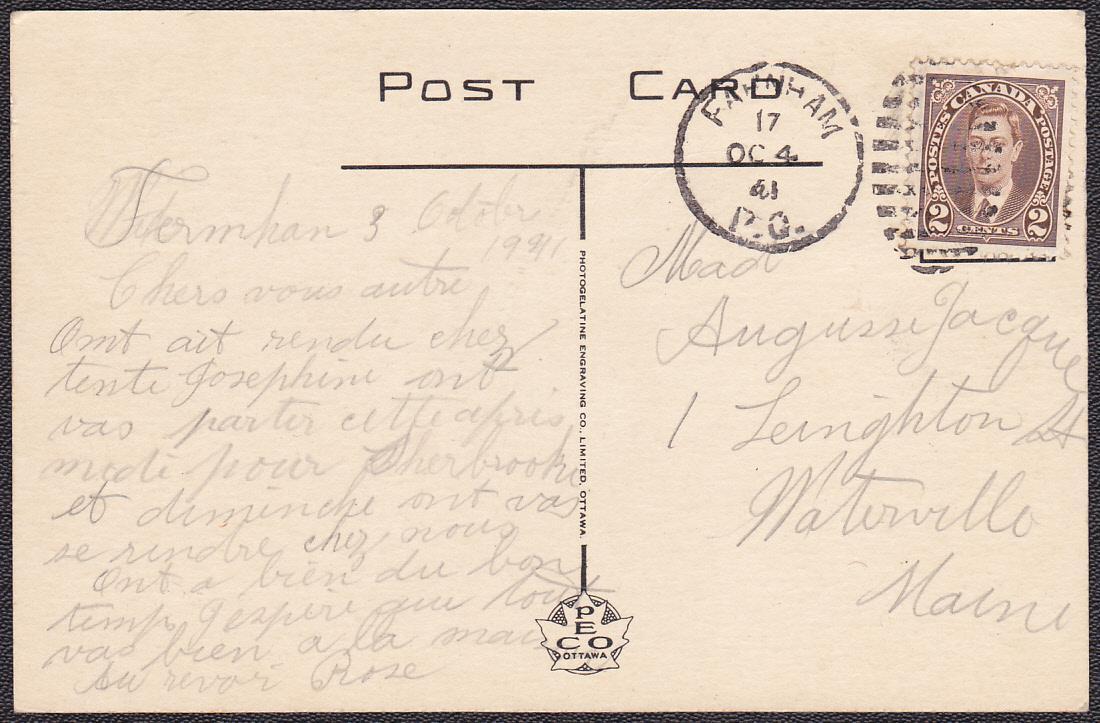 POST CARD
FARNHAM
17
OC 4
41
P.Q.
POSTES CANADA POSTAGE
2 CENTS 2
3 Octobr
1941
Chers vous autre
Ont ait rendu chez
tente Josephine ont
vas parter cette apris
medi pour Sherbrooke
et diminche ont vas
se rendre chez nous
Ont a bien du bon
temp J'espire que tout
vas bien a la mais
Au revoir Rose
PHOTOGELATINE ENGRAVING CO., LIMITED, OTTAWA.
PECO
OTTAWA
Mad
Augusse Jacque
1 Leinghton St
Waterville
Maine